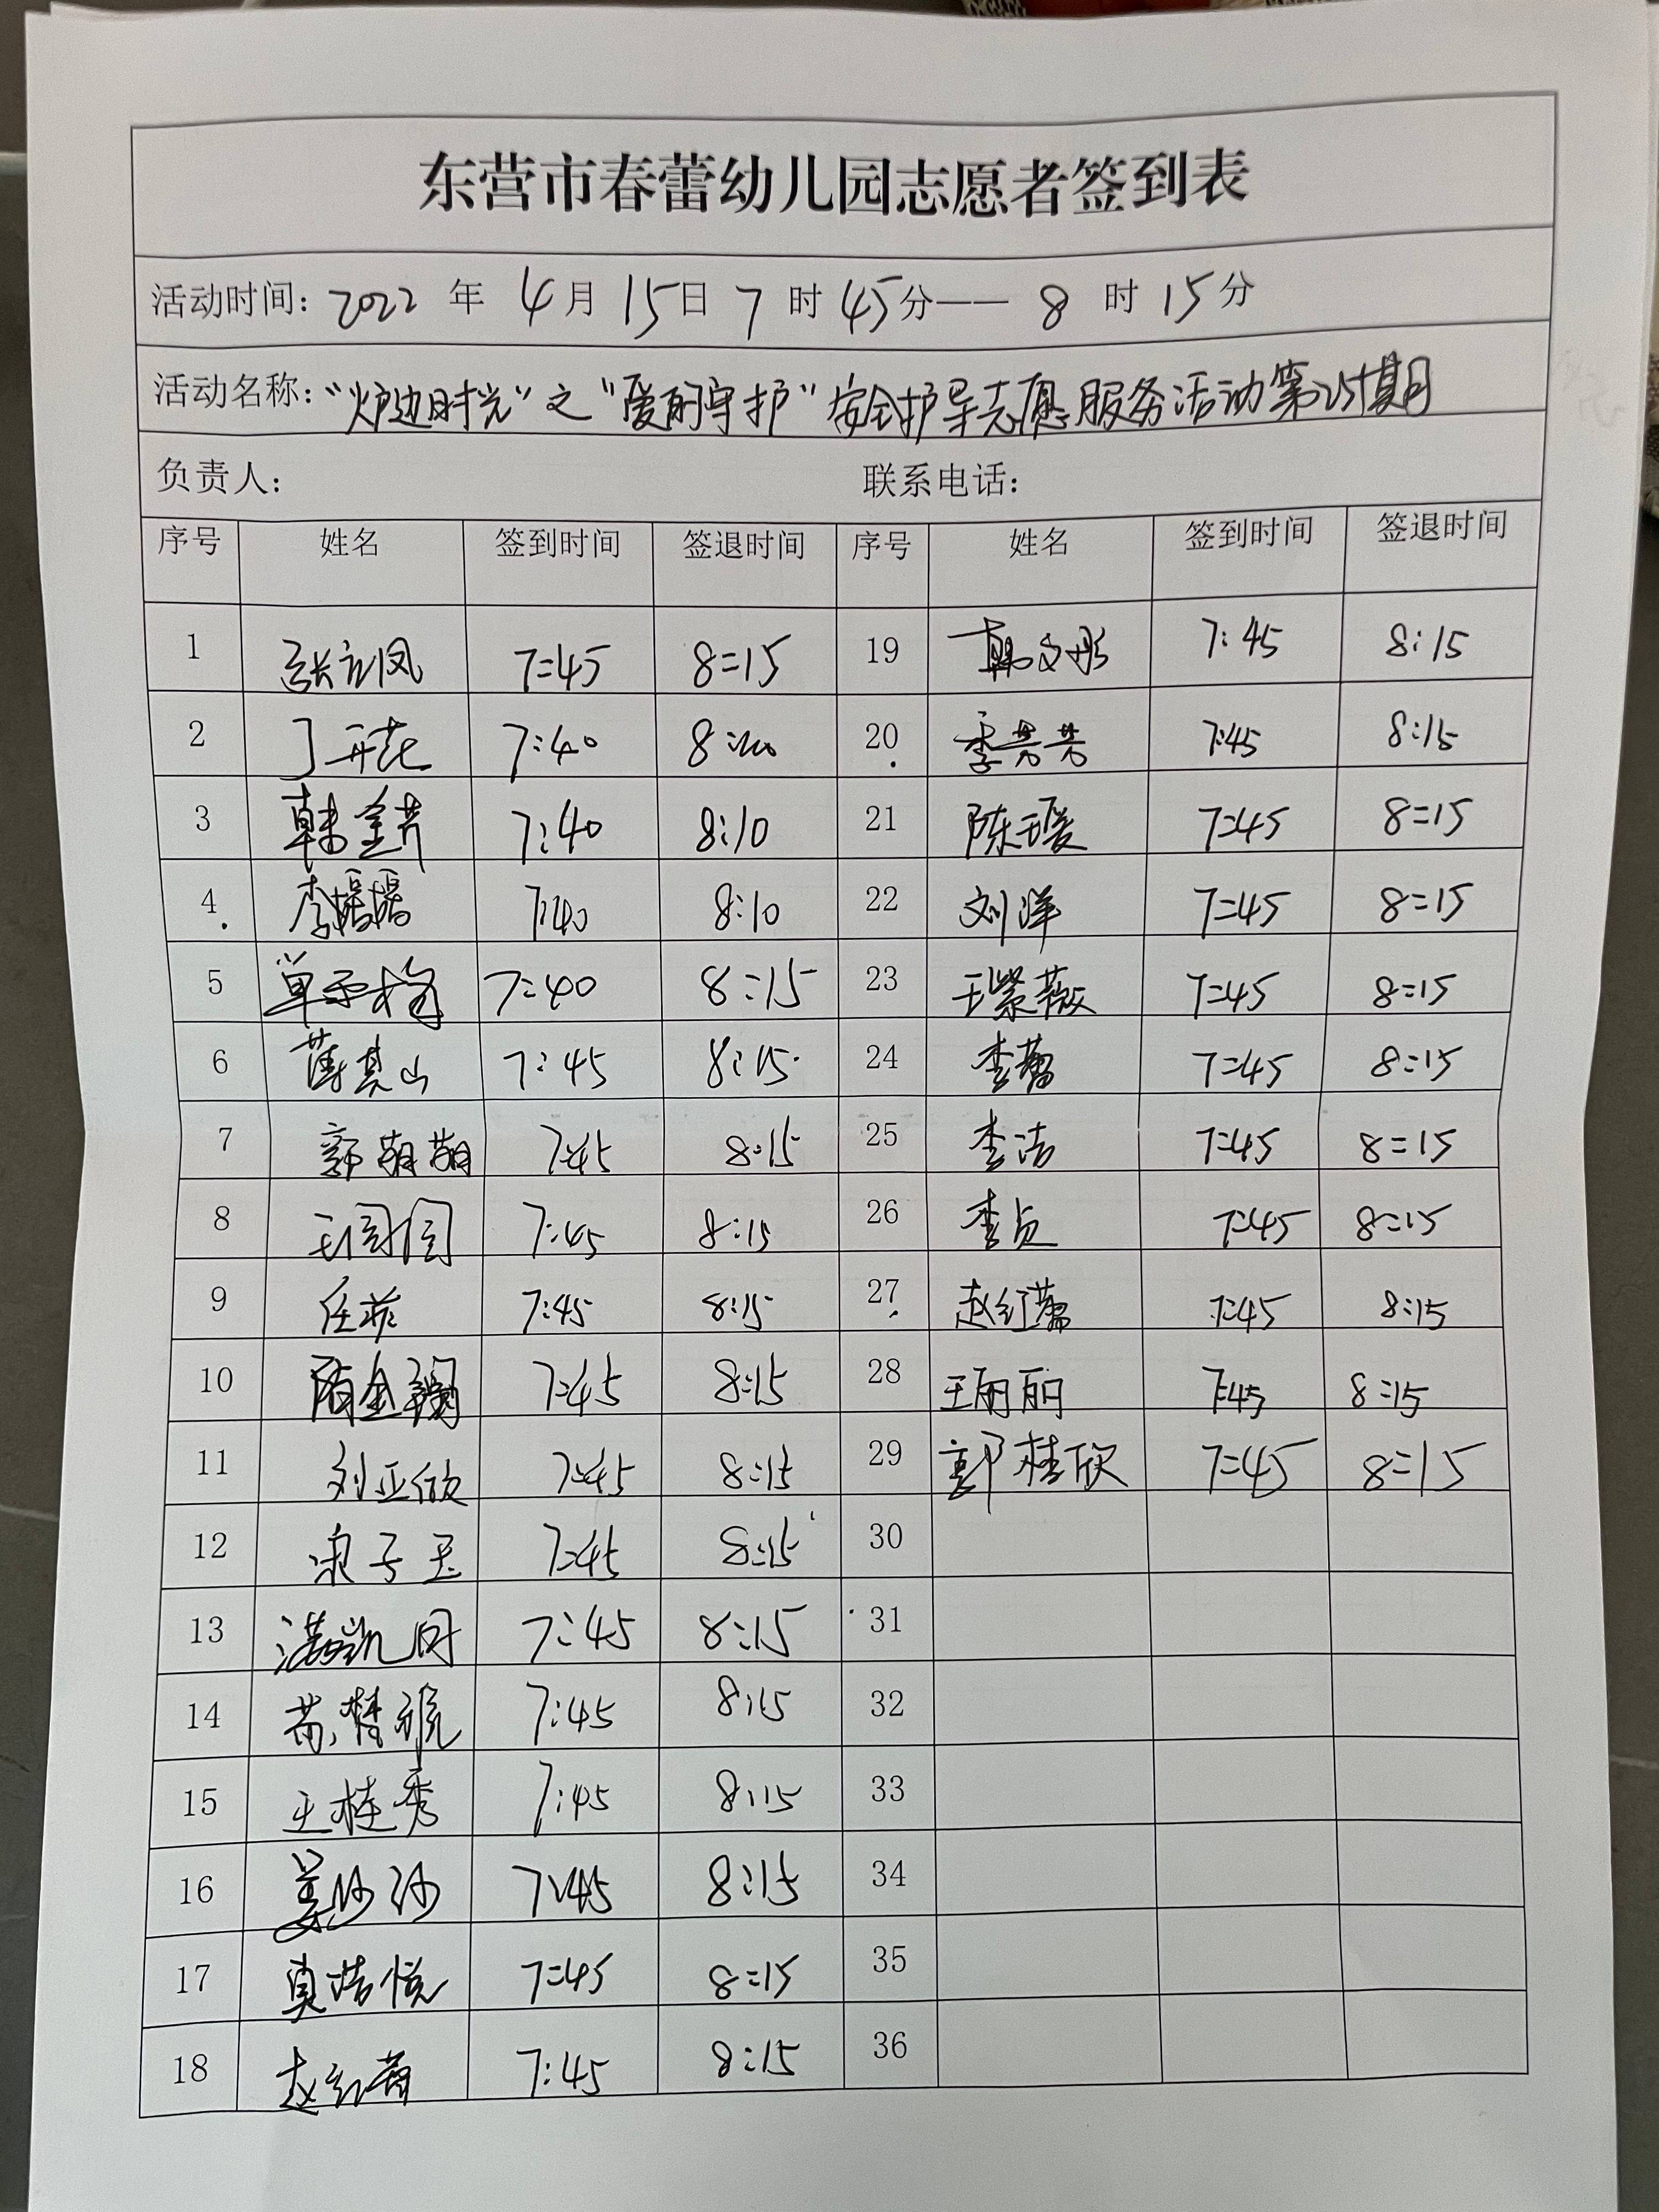 东营市春蕾幼儿园志愿者签到表
活动时间：2022 年 4 月 15 日 7 时 45 分—— 8 时 15 分
活动名称："炉边时光"之"爱的守护"安全护导志愿服务活动第25期
负责人： 联系电话：
序号 姓名 签到时间 签退时间 序号 姓名 签到时间 签退时间
1 张立凤 7:45 8:15 19 韩文彤 7:45 8:15
2 丁开花 7:40 8:00 20 季芳芳 7:45 8:15
3 韩金芹 7:40 8:10 21 陈瑗 7:45 8:15
4 李媛媛 7:40 8:10 22 刘洋 7:45 8:15
5 单玉梅 7:40 8:15 23 王紫薇 7:45 8:15
6 薄其山 7:45 8:15 24 李蕾 7:45 8:15
7 郭萌萌 7:45 8:15 25 李洁 7:45 8:15
8 王闫闫 7:45 8:15 26 李贞 7:45 8:15
9 任菲 7:45 8:15 27 赵红蕾 7:45 8:15
10 7:45 8:15 28 王丽丽 7:45 8:15
11 刘亚欣 7:45 8:15 29 郭桂欣 7:45 8:15
12 子玉 7:45 8:15 30
13 满凯同 7:45 8:15 31
14 苏 7:45 8:15 32
15 王桂秀 7:45 8:15 33
16 姜沙沙 7:45 8:15 34
17 真浩悦 7:45 8:15 35
18 赵红 7:45 8:15 36